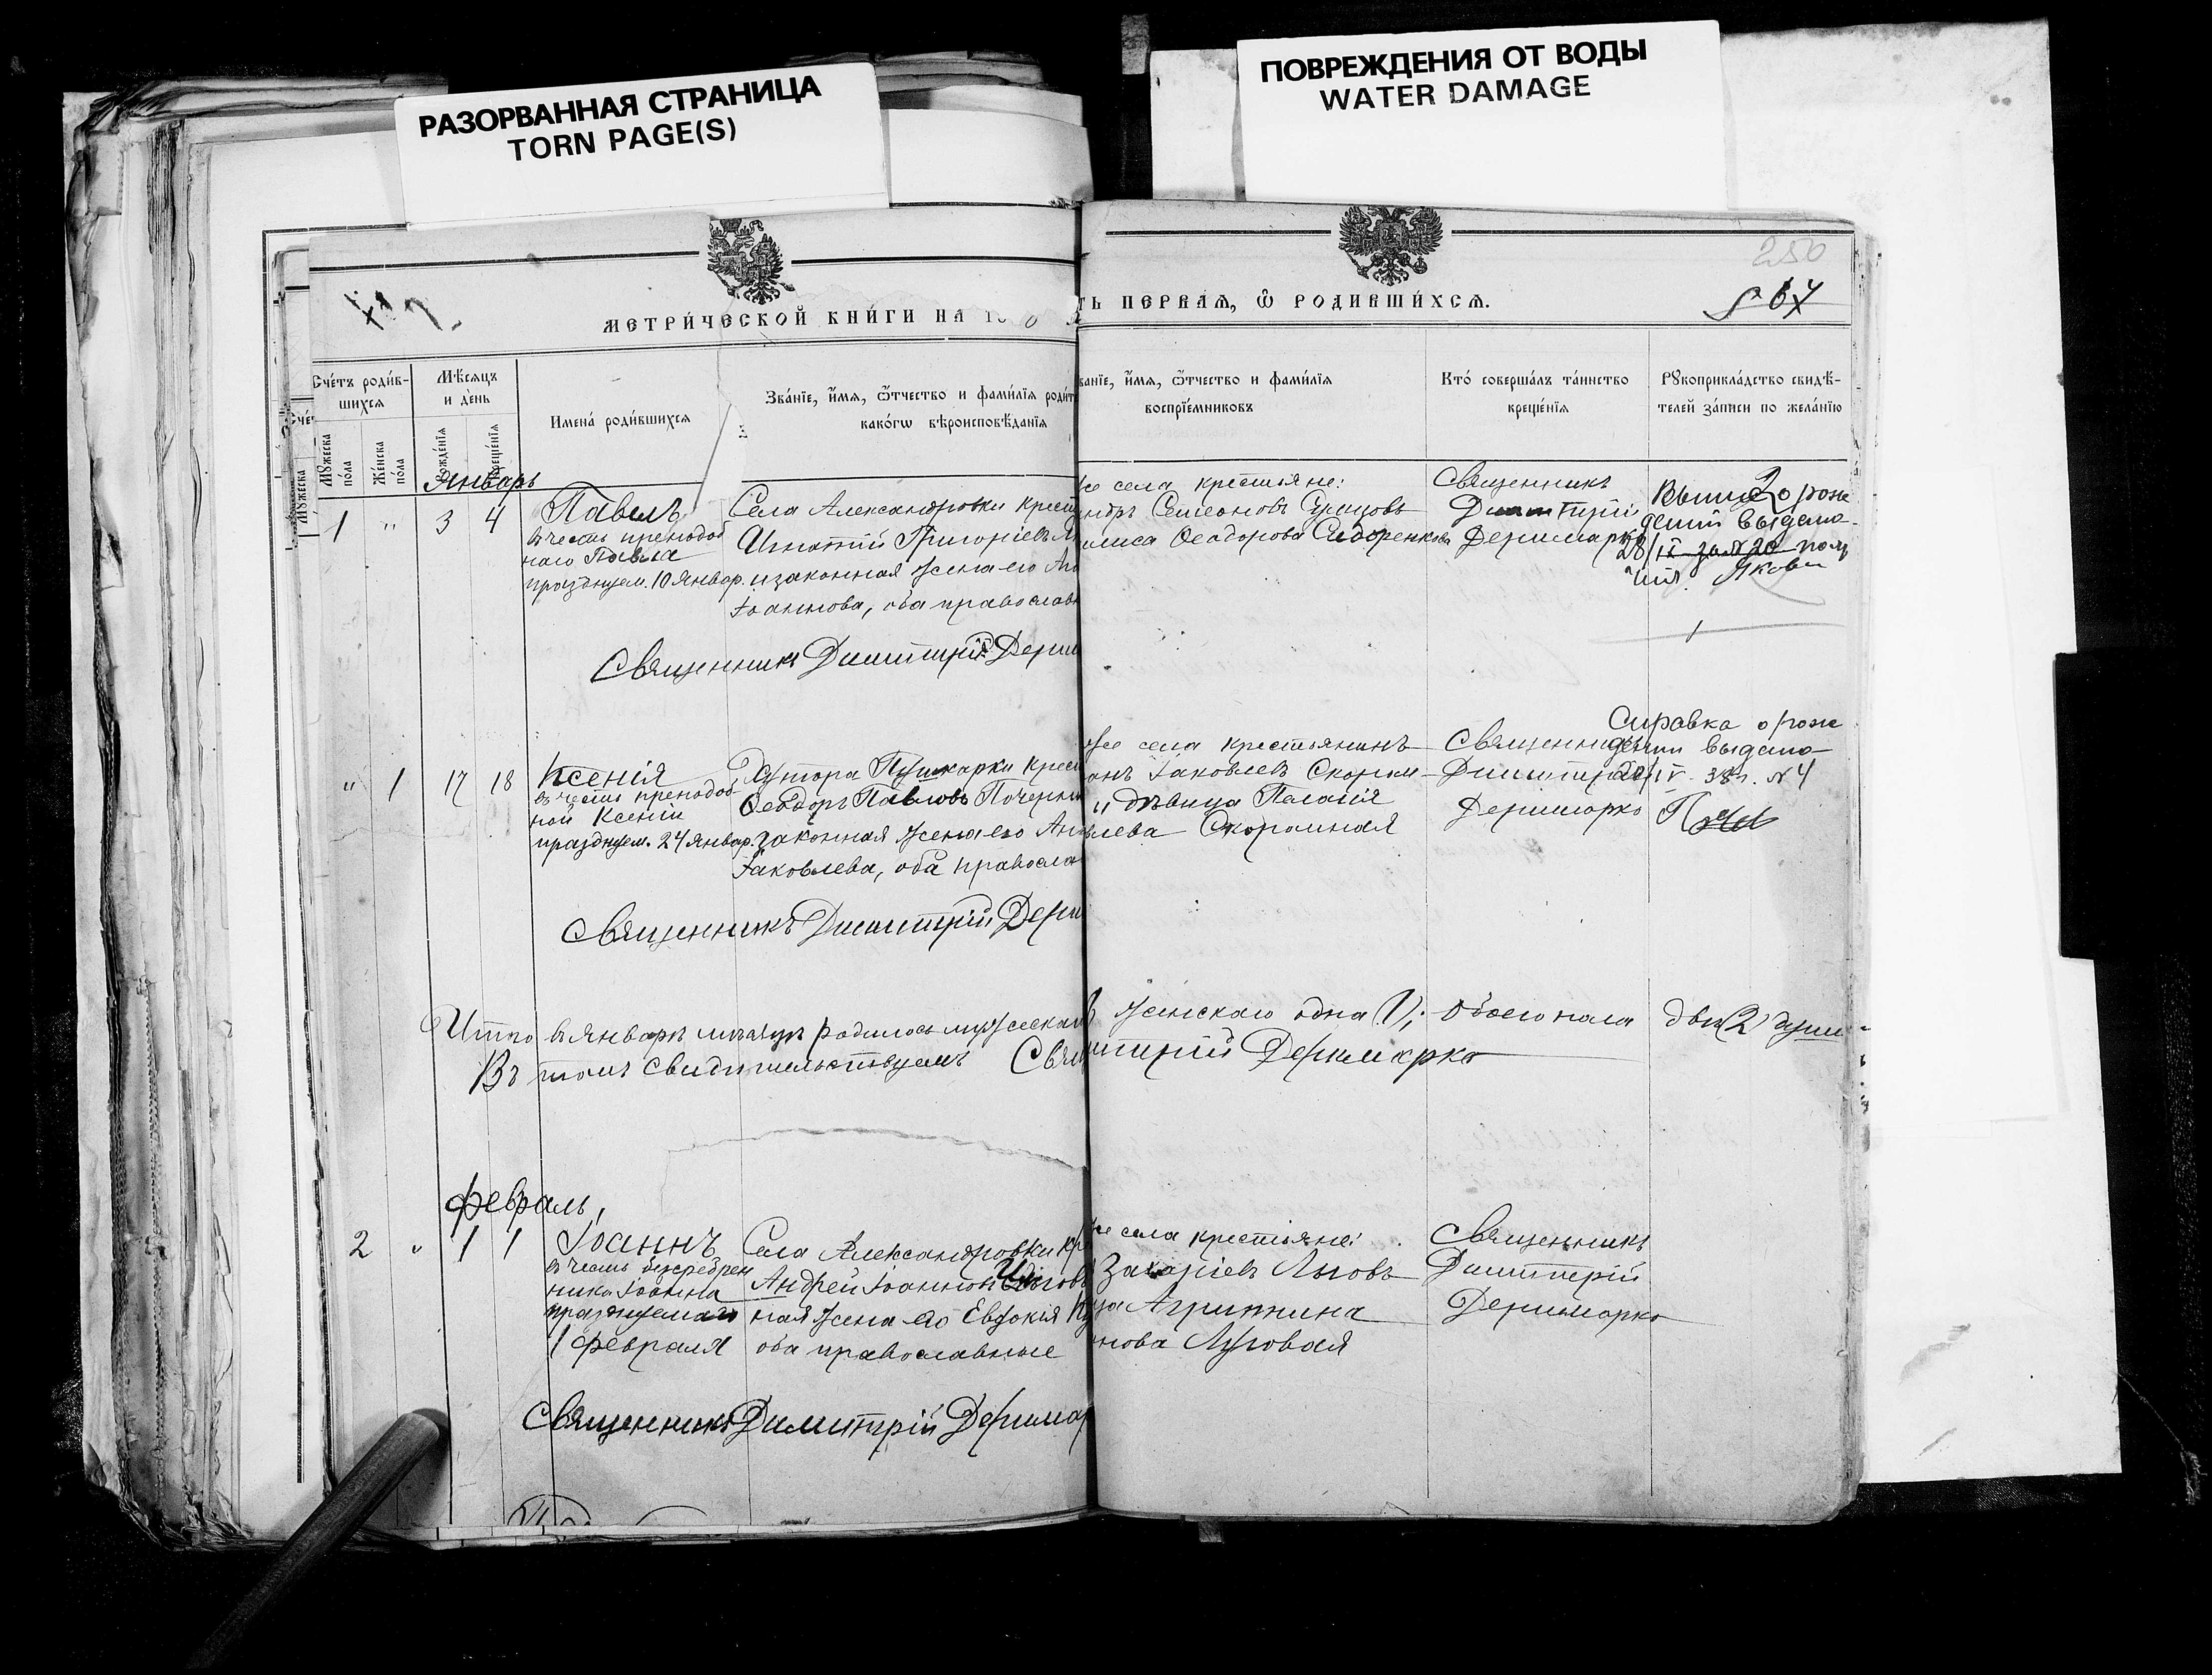 РАЗОРВАННАЯ СТРАНИЦА
TORN PAGE(S)
ПОВРЕЖДЕНИЯ ОТ ВОДЫ
WATER DAMAGE
250
67
МЕТРИ́ЧЕСКОЙ КНИ́ГИ НА
ТЬ ПЕРВАѦ, Ѿ РОДИВШИ́ХСѦ.
Сче́тъ роди́в-
шихсѧ
Мꙋ́жеска по́ла
Же́нска по́ла
Мѣ́сѧцъ
и де́нь
Имена́ роди́вшихсѧ
Зва́нїе, и҆́мѧ, ѻ҆́тчество и фами́лїѧ роди́т
како́гѡ вѣроисповѣ́данїѧ
ва́нїе, и҆́мѧ, ѻ҆́тчество и фами́лїѧ
воспрїе́мниковъ
Кто́ соверша́лъ та́инство
креще́нїѧ
Рꙋкоприкла́дство свидѣ́-
телей за́писи по жела́нїю
Январь
1 " 3 4
Павелъ
въ честь преподоб
наго Павла
празднуем. 10 Январ.
Села Александровки крест
Игнатій Григоріевъ
и законная жена его
Іоаннова, оба православн
же села крестьяне:
Семеоновъ
Ѳеодорова Сидоренкова
Священникъ
Димитрій
Деримарко
о рож
дении выдана
28/IX
Священникъ Димитрій Дерим
" 1 17 18
Ксенія
въ честь преподоб
ной Ксеніи
празднуем. 24 Январ.
Хутора Пушкарки Крест
Ѳеодоръ Павловъ
законная жена его
Іаковлева, оба правосла
же села крестьянинъ
Іаковлевъ
и дѣвица Пелагія
влева Скоромная
Священникъ
Димитрій
Деримарко
Справка о рож
дении выдана
IV 38г. №4
Священникъ Димитрій Дери
Итого въ Январѣ мѣсяцѣ родилось мужескаго
женскаго одна 1; Обоего пола двѣ (2) души
Въ томъ свидѣтельствуемъ Свящ
митрій Деримарко
Февраль
2 " 1 1
Іоаннъ
въ честь безсребрен
ника Іоанна
празднуемаго
1 Февраля
Села Александровки кр
Андрей Іоанновъ
ная жена его Евдокія
оба православные
же села крестьяне:
Захаріевъ
Агрипина
нова Луговая
Священникъ
Димитрій
Деримарко
Священникъ Димитрій Деримар